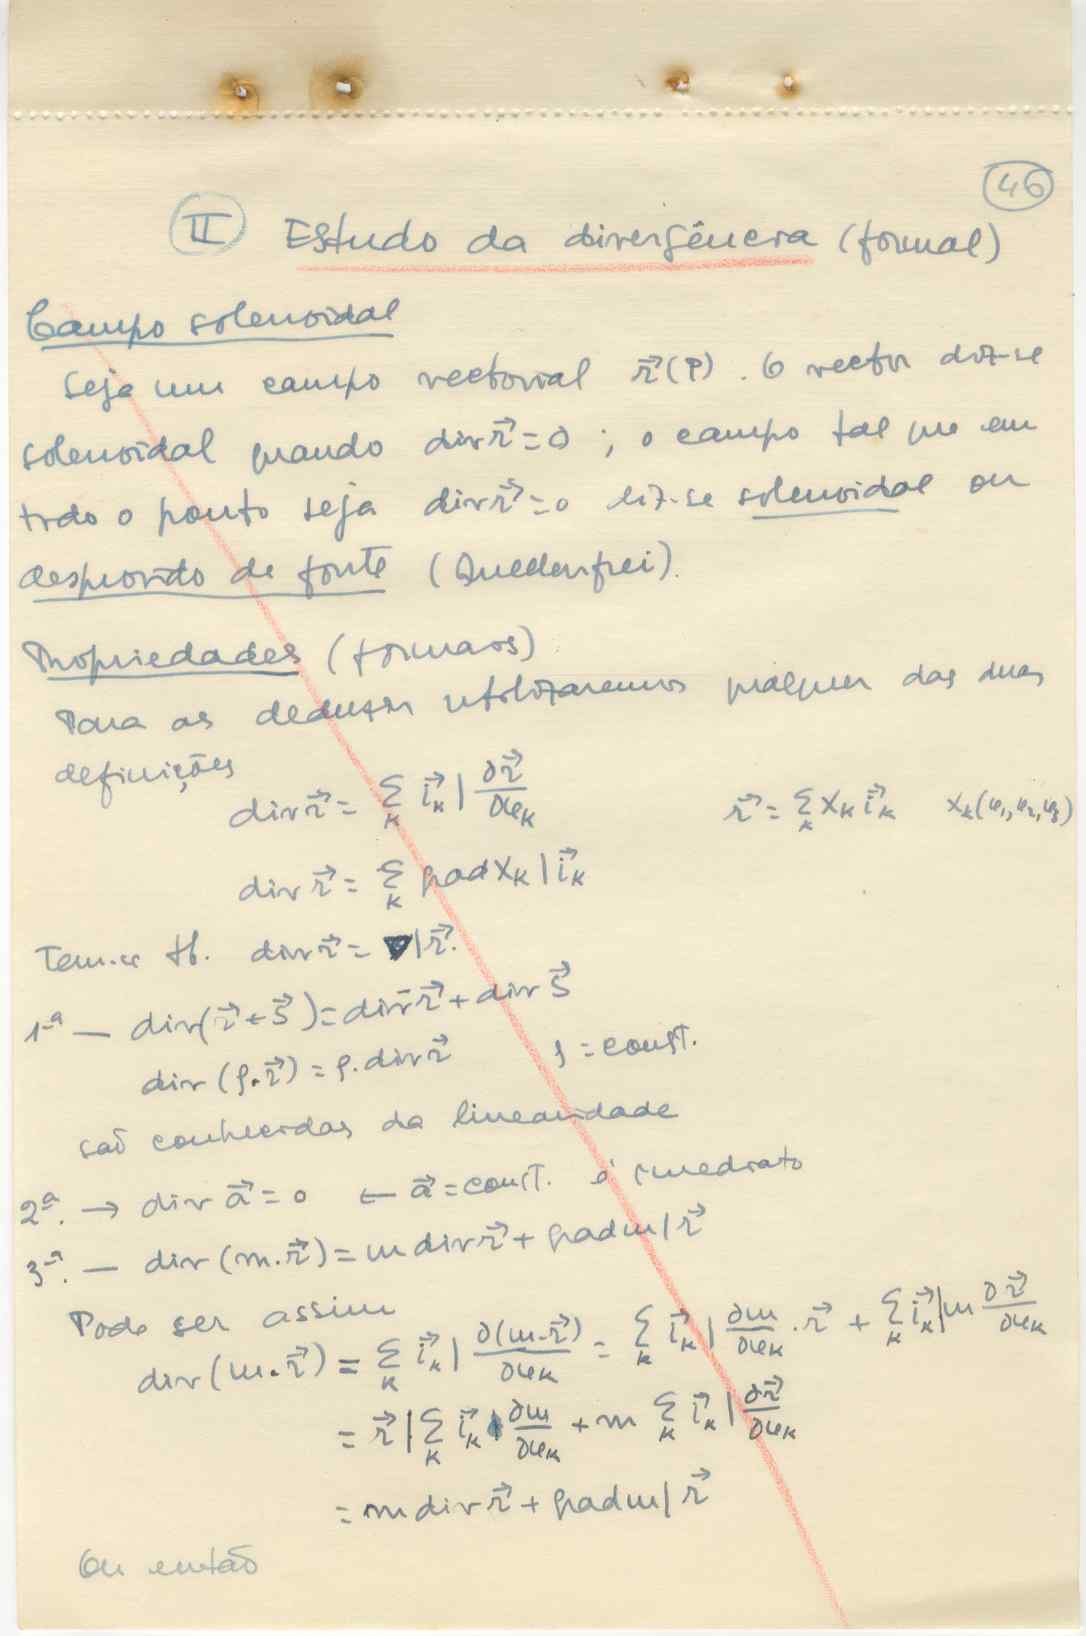 46
II Estudo da divergência (formal)
Campo solenoidal
Seja um campo vectorial r⃗(P). O vector diz-se
solenoidal quando div r⃗ = 0 ; o campo tal que em
todo o ponto seja div r⃗ = 0 diz-se solenoidal ou
desprovido de fonte (Quellenfrei).
Propriedades (formais)
Para as deduzir utilizaremos qualquer das duas
definições
div r⃗ = Σ_k i⃗_k | ∂r⃗/∂x_k    r⃗ = Σ_k X_k i⃗_k    X_k(x_1, x_2, x_3)
div r⃗ = Σ_k grad X_k | i⃗_k
Tem-se tb. div r⃗ = ∇ | r⃗.
1ª — div(r⃗ + s⃗) = div r⃗ + div s⃗
div (ρ.r⃗) = ρ. div r⃗    ρ = const.
saõ conhecidas da linearidade
2ª. → div a⃗ = 0 ← a⃗ = const. é imediato
3ª. — div (m.r⃗) = m div r⃗ + grad m | r⃗
Pode ser assim
div (m.r⃗) = Σ_k i⃗_k | ∂(m.r⃗)/∂x_k = Σ_k i⃗_k | ∂m/∂x_k . r⃗ + Σ_k i⃗_k | m ∂r⃗/∂x_k
= r⃗ | Σ_k i⃗_k ∂m/∂x_k + m Σ_k i⃗_k | ∂r⃗/∂x_k
= m div r⃗ + grad m | r⃗
Ou então